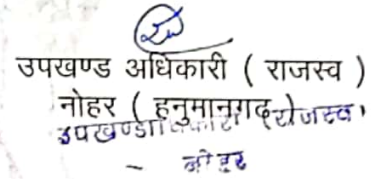 उपखण्ड अधिकारी ( राजस्व )
नोहर ( हनुमानगढ़ )
उपखण्ड राजस्व
नोहर